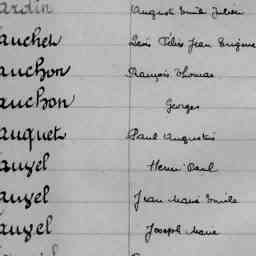 ardin Auguste Emile Julien
auchet Léon Félix Jean Eugène
auchon François Thomas
auchon Georges
auquet Paul Augustin
auvel Henri Paul
auvel Jean Marie Emile
auvel Joseph Marie